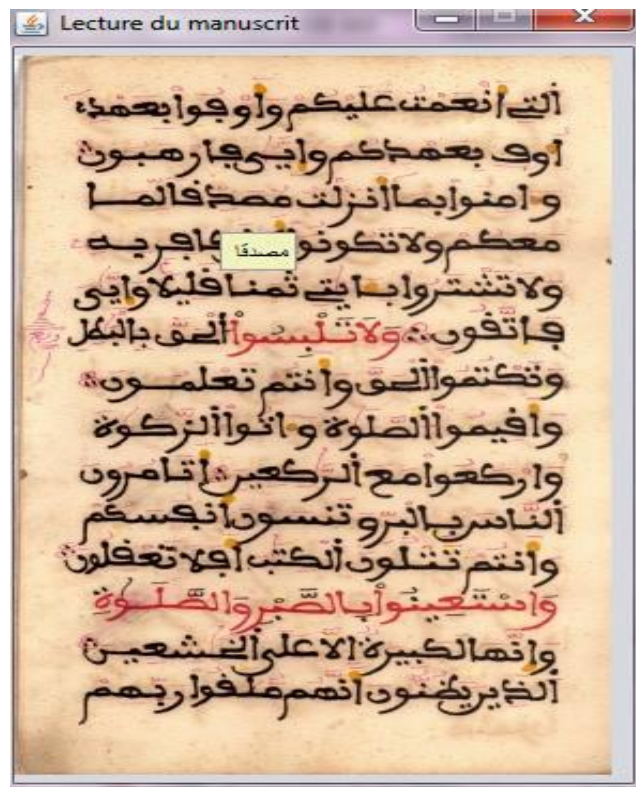 Lecture du manuscrit
التي أنعمت عليكم وأوفوا بعهدي
أوف بعهدكم وإيي فارهبون
وءامنوا بما أنزلت مصدقا لما
معكم ولا تكونوا كافر به
مصدقا
ولا تشتروا بايتي ثمنا قليلا وإيي
فاتقون ولا تلبسوا الحق بالبطل
وتكتموا الحق وأنتم تعلمون
وأقيموا الصلوة وءاتوا الزكوة
واركعوا مع الركعين أتامرون
الناس بالبر وتنسون أنفسكم
وأنتم تتلون الكتب أفلا تعقلون
واستعينوا بالصبر والصلوة
وإنها لكبيرة الا على الخشعين
الذين يظنون أنهم ملقوا ربهم